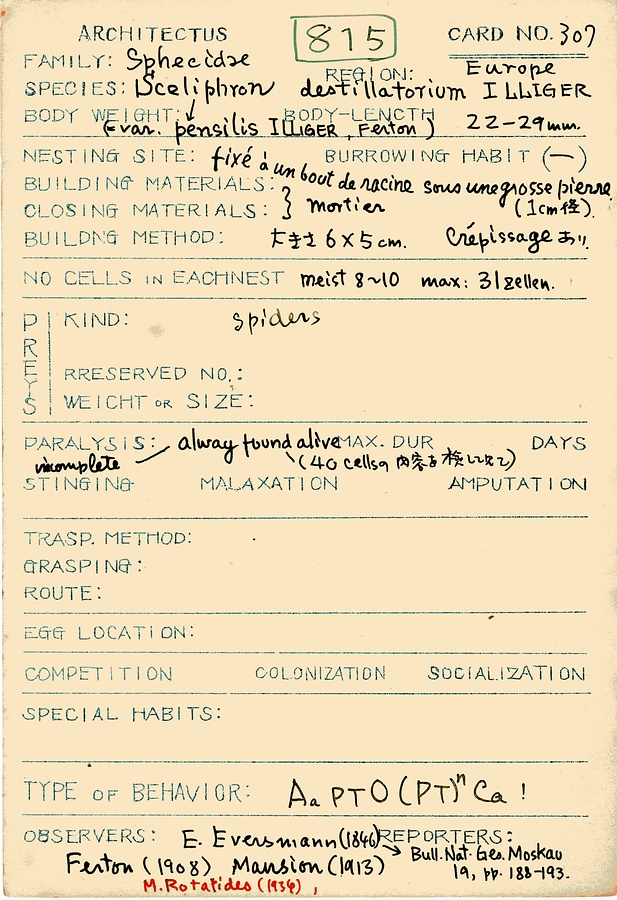 ARCHITECTUS 815 CARD NO. 307
FAMILY: Sphecidae REGION: Europe
SPECIES: Sceliphron destillatorium ILLIGER
BODY WEIGHT: BODY-LENGTH 22-29mm.
(var. pensilis ILLIGER, Ferton)
NESTING SITE: fixé à un bout de racine sous une grosse pierre BURROWING HABIT (—)
BUILDING MATERIALS: } mortier
CLOSING MATERIALS: (1cm径).
BUILDNG METHOD: 大きさ 6×5cm. Crépissageあり.
NO CELLS IN EACHNEST meist 8~10 max: 31 zellen.
PREYS
KIND: spiders
RRESERVED NO.:
WEICHT OR SIZE:
PARALYSIS: alway found alive MAX. DUR DAYS
incomplete (40 cellsの内容を検して)
STINGING MALAXATION AMPUTATION
TRASP. METHOD:
GRASPING:
ROUTE:
EGG LOCATION:
COMPETITION COLONIZATION SOCIALIZATION
SPECIAL HABITS:
TYPE OF BEHAVIOR: Aa PTO (PT)ⁿ Ca !
OBSERVERS: E. Eversmann (1846) REPORTERS:
→ Bull. Nat. Ges. Moskau
Ferton (1908) Mansion (1913) 19, pp. 188-193.
M. Rotatides (1934),